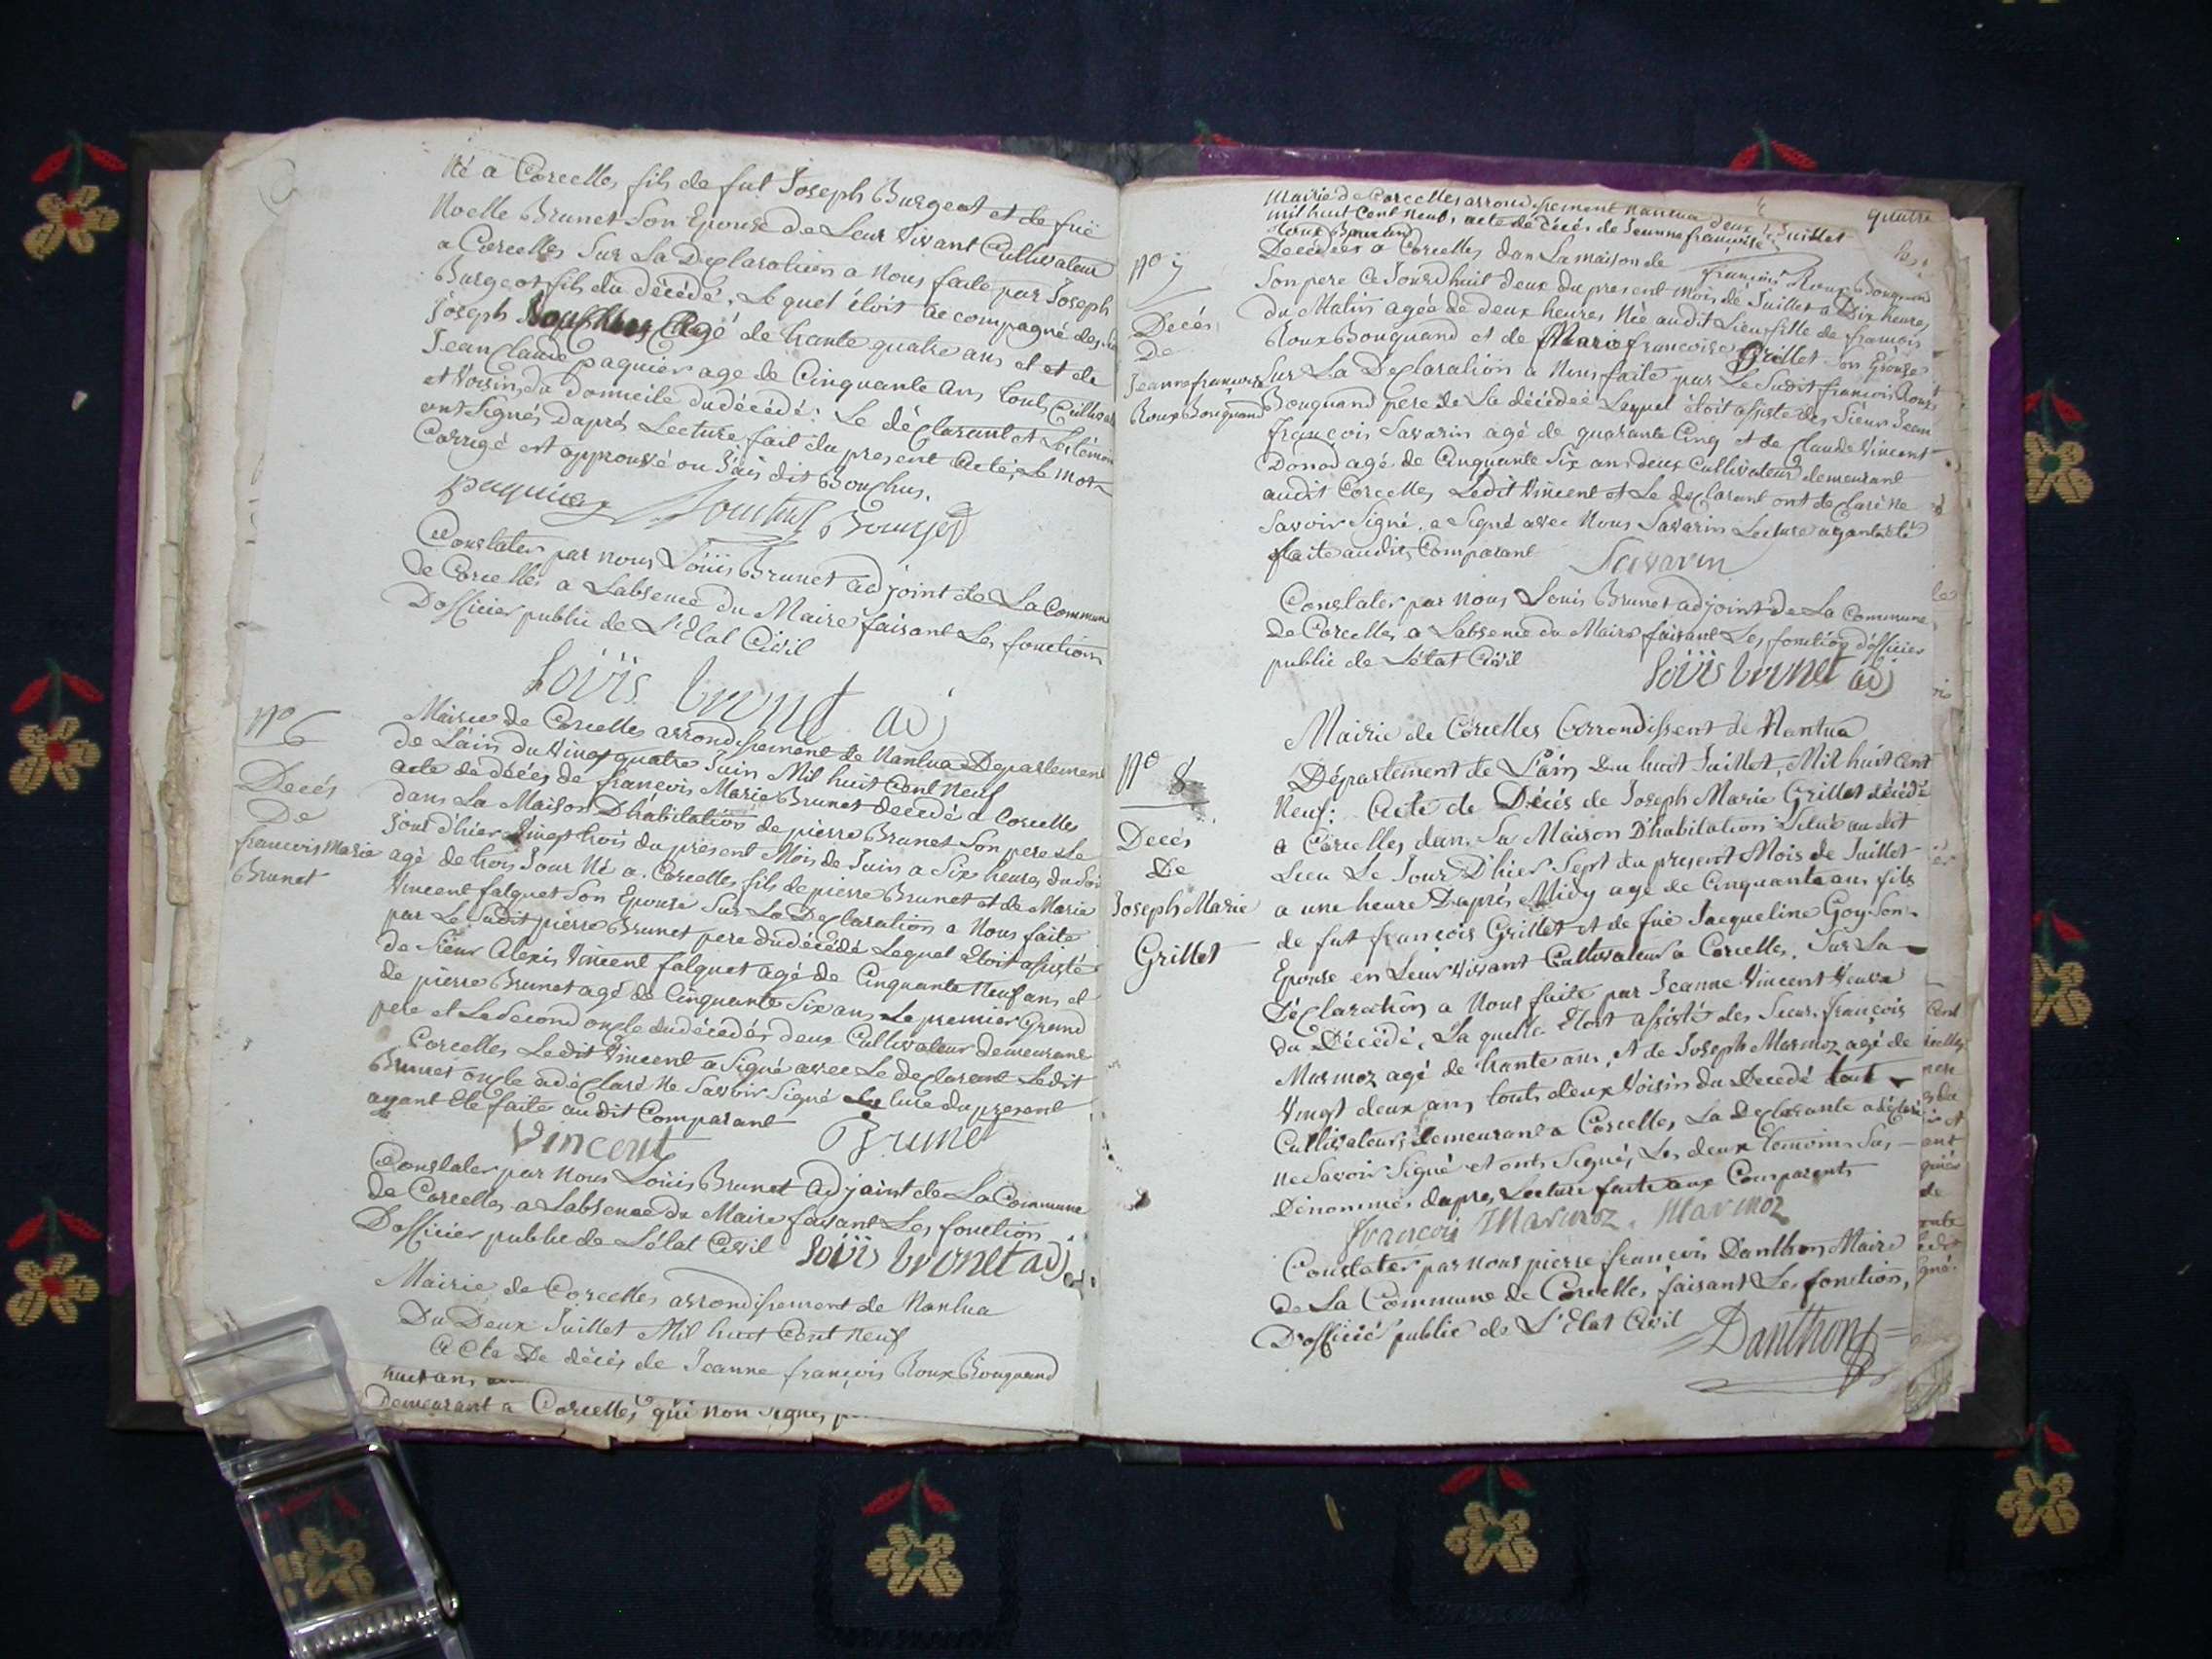 Né a Corcelles fils de fut Joseph Burgeot et de fuë
Noelle Brunet Son Epouse de Leur Vivant Cultivateur
a Corcelles Sur La Declaration a Nous faite par Joseph
Burgeot fils du décédé, Lequel étoit accompagné des
Joseph agé de trante quatre ans et et de
Jean Claude paquier age de Cinquante ans touts Cultiva
et Voisin du domicile du décédé. Le déclarant et Les témoin
ont Signés Daprés Lecture fait du present acte, Le mot
Corrigé est approuvé ou J'ais dit Bouchus.
paquier Bourjeot
Constater par nous Loüis Brunet adjoint de La Commune
de Corcelles a Labsence du Maire faisant Les fonctions
Dofficier public de L'Etat Civil
loüis brunet adj
No 6
Décés
De
francois Marie
Brunet
Mairie de Corcelles arrondissement de Nantua Departement
de Lain du Vingt quatre Juin Mil huit Cent Neuf
acte de décés de françois Marie Brunet décedé a Corcelles
dans La Maison D'habitation de pierre Brunet Son pere Le
Jour d'hier Vingt trois du présent Mois de Juin a Six heures du Soir
agé de trois Jour Né a Corcelles fils de pierre Brunet et de Marie
Vincent falquet Son Epouse Sur La Declaration a Nous faite
par Le Sudit pierre Brunet pere du décédé Lequel Etoit assisté
de Sieur Alexis Vincent falquet agé de Cinquante Neuf ans et
de pierre Brunet agé de Cinquante Six ans Le premier Grand
pere et Le Second oncle du décédés deux Cultivateur demeurant
Corcelles Ledit Vincent a Signé avec Le declarant Ledit
Brunet oncle a déclaré Ne Savoir Signé Lecture du present
ayant Eté faite audit Comparant
Vincent Brunet
Constater par Nous Loüis Brunet adjoint de La Commune
de Corcelles a Labsence du Maire faisant Les fonction
Dofficier public de L'état Civil loüis brunet adj
Mairie de Corcelles arrondissement de Nantua
Du Deux Juillet Mil huit Cent Neuf
acte De décés de Jeanne françois Roux Bouquand
huit ans
Demeurant a Corcelles qui non Signes
quatre
Mairie de Corcelles arrondissement Nantua deux Juillet
mil huit Cent Neuf, acte de décés de Jeanne françoise
Roux Bouquand
No 7
Decés
De
Jeanne françoise
Roux Bouquand
Decedée a Corcelles dans La maison de françois Roux Bouquand
Son pere Ce Jourd'huit deux du present mois de Juillet a Dix heures
du Matin agée de deux heures Née audit Lieu fille de françois
Roux Bouquand et de Marie françoise Grillet Son Epouse
Sur La Declaration a Nous faite par Le Sudit françois Roux
Bouquand pere de La décedée Lequel étoit assisté des Sieur Jean
françois Savarin agé de quarante Cinq et de Claude Vincent
Donod agé de Cinquante Six ans deux Cultivateur demeurant
audit Corcelles Ledit Vincent et Le declarant ont declaré Ne
Savoir Signé, a Signé avec Nous Savarin Lecture ayant été
faite audit Comparant Savarin
Constater par Nous Louis Brunet adjoint de La Commune
de Corcelles a Labsence du Maire faisant Les fonction dofficier
public de L'état Civil loüis brunet adj
Mairie de Corcelles Arrondissent de Nantua
No 8
Decés
De
Joseph Marie
Grillet
Département de L'ain Du huit Juillet, Mil huit Cent
Neuf: Acte de Décés de Joseph Marie Grillet décédé
a Corcelles dans Sa Maison D'habitation Situé audit
Lieu Le Jour D'hier Sept du present Mois de Juillet
a une heure Daprés Midy agé de Cinquante ans fils
de fut françois Grillet et de fuë Jacqueline Goy Son
Epouse en Leur Vivant Cultivateur a Corcelles. Sur La
Déclaration a Nous faite par Jeanne Vincent Veuve
du Décédé, La quelle Etoit assisté des Sieur françois
Marmoz agé de trante ans, et de Joseph Marmoz agé de
Vingt deux ans touts deux Voisin du Decedé tout
Cultivateurs demeurant a Corcelles La Declarante a déclaré
ne Savoir Signé et onts Signé, Les deux temoins Sus
Dénommés dapres Lecture faite aux Comparants
françois Marmoz. Marmoz
Constater par nous pierre françois Danthon Maire
de La Commune de Corcelles faisant Les fonction,
D'officié public de L'Etat Civil Danthon